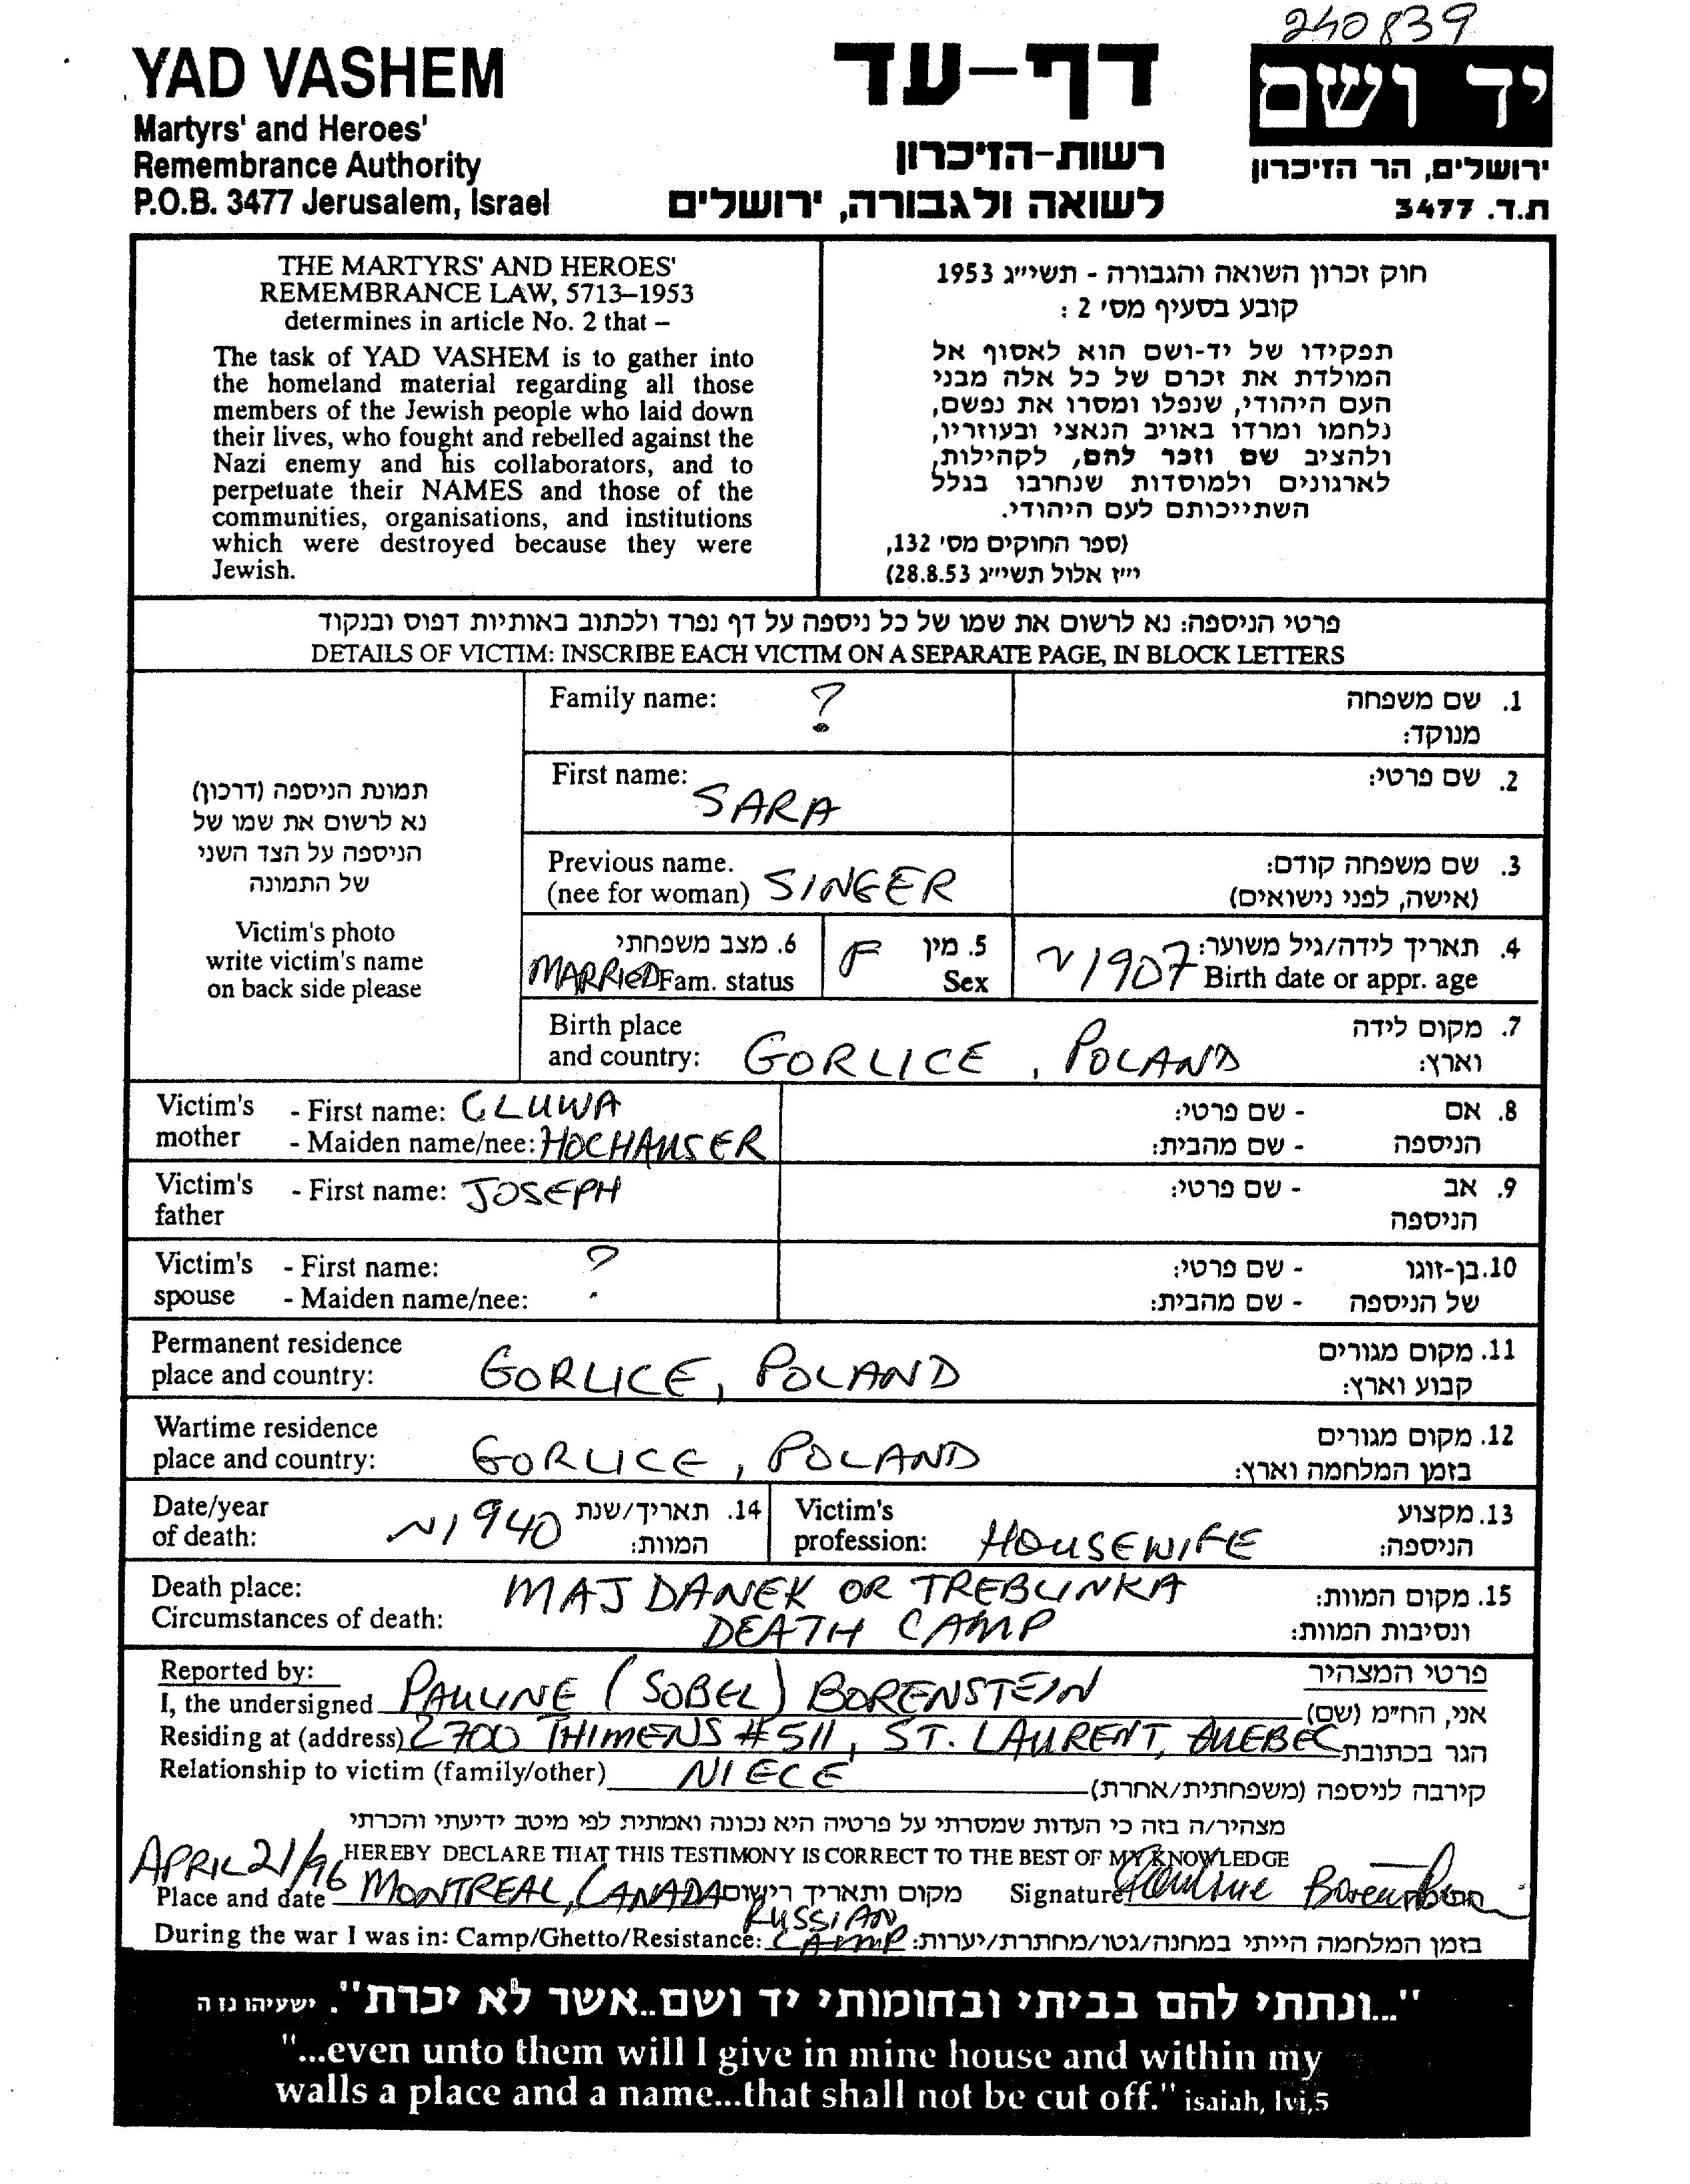 240839
YAD VASHEM
Martyrs' and Heroes'
Remembrance Authority
P.O.B. 3477 Jerusalem, Israel
דף-עד
רשות-הזיכרון
לשואה ולגבורה, ירושלים
יד ושם
ירושלים, הר הזיכרון
ת.ד. 3477
THE MARTYRS' AND HEROES'
REMEMBRANCE LAW, 5713–1953
determines in article No. 2 that –
The task of YAD VASHEM is to gather into
the homeland material regarding all those
members of the Jewish people who laid down
their lives, who fought and rebelled against the
Nazi enemy and his collaborators, and to
perpetuate their NAMES and those of the
communities, organisations, and institutions
which were destroyed because they were
Jewish.
חוק זכרון השואה והגבורה - תשי״ג 1953
קובע בסעיף מס' 2 :
תפקידו של יד-ושם הוא לאסוף אל
המולדת את זכרם של כל אלה מבני
העם היהודי, שנפלו ומסרו את נפשם,
נלחמו ומרדו באויב הנאצי ובעוזריו,
ולהציב שם וזכר להם, לקהילות,
לארגונים ולמוסדות שנחרבו בגלל
השתייכותם לעם היהודי.
(ספר החוקים מס' 132,
י״ז אלול תשי״ג 28.8.53)
פרטי הניספה: נא לרשום את שמו של כל ניספה על דף נפרד ולכתוב באותיות דפוס ובנקוד
DETAILS OF VICTIM: INSCRIBE EACH VICTIM ON A SEPARATE PAGE, IN BLOCK LETTERS
תמונת הניספה (דרכון)
נא לרשום את שמו של
הניספה על הצד השני
של התמונה
Victim's photo
write victim's name
on back side please
Family name: ? 1. שם משפחה
מנוקד:
First name: SARA 2. שם פרטי:
Previous name. 3. שם משפחה קודם:
(nee for woman) SINGER (אישה, לפני נישואים)
6. מצב משפחתי 5. מין 4. תאריך לידה/גיל משוער:
MARRIED Fam. status F Sex ~1907 Birth date or appr. age
Birth place 7. מקום לידה
and country: GORLICE, POLAND וארץ:
Victim's - First name: GLUWA - שם פרטי: 8. אם
mother - Maiden name/nee: HOCHAUSER - שם מהבית: הניספה
Victim's - First name: JOSEPH - שם פרטי: 9. אב
father הניספה
Victim's - First name: ? - שם פרטי: 10. בן-זוגו
spouse - Maiden name/nee: - שם מהבית: של הניספה
Permanent residence 11. מקום מגורים
place and country: GORLICE, POLAND קבוע וארץ:
Wartime residence 12. מקום מגורים
place and country: GORLICE, POLAND בזמן המלחמה וארץ:
Date/year 14. תאריך/שנת Victim's 13. מקצוע
of death: ~1940 המוות: profession: HOUSEWIFE הניספה:
Death place: MAJDANEK OR TREBLINKA 15. מקום המוות:
Circumstances of death: DEATH CAMP ונסיבות המוות:
Reported by: פרטי המצהיר
I, the undersigned PAULINE (SOBEL) BORENSTEIN אני, הח״מ (שם)
Residing at (address) 2700 THIMENS #511, ST. LAURENT, QUEBEC הגר בכתובת
Relationship to victim (family/other) NIECE קירבה לניספה (משפחתית/אחרת)
מצהיר/ה בזה כי העדות שמסרתי על פרטיה היא נכונה ואמתית לפי מיטב ידיעתי והכרתי
APRIL 21/96 HEREBY DECLARE THAT THIS TESTIMONY IS CORRECT TO THE BEST OF MY KNOWLEDGE
Place and date MONTREAL, CANADA מקום ותאריך רישום Signature Pauline Borenstein
RUSSIAN
During the war I was in: Camp/Ghetto/Resistance: CAMP בזמן המלחמה הייתי במחנה/גטו/מחתרת/יערות:
"...ונתתי להם בביתי ובחומותי יד ושם..אשר לא יכרת". ישעיהו נו ה
"...even unto them will I give in mine house and within my
walls a place and a name...that shall not be cut off." isaiah, lvi,5